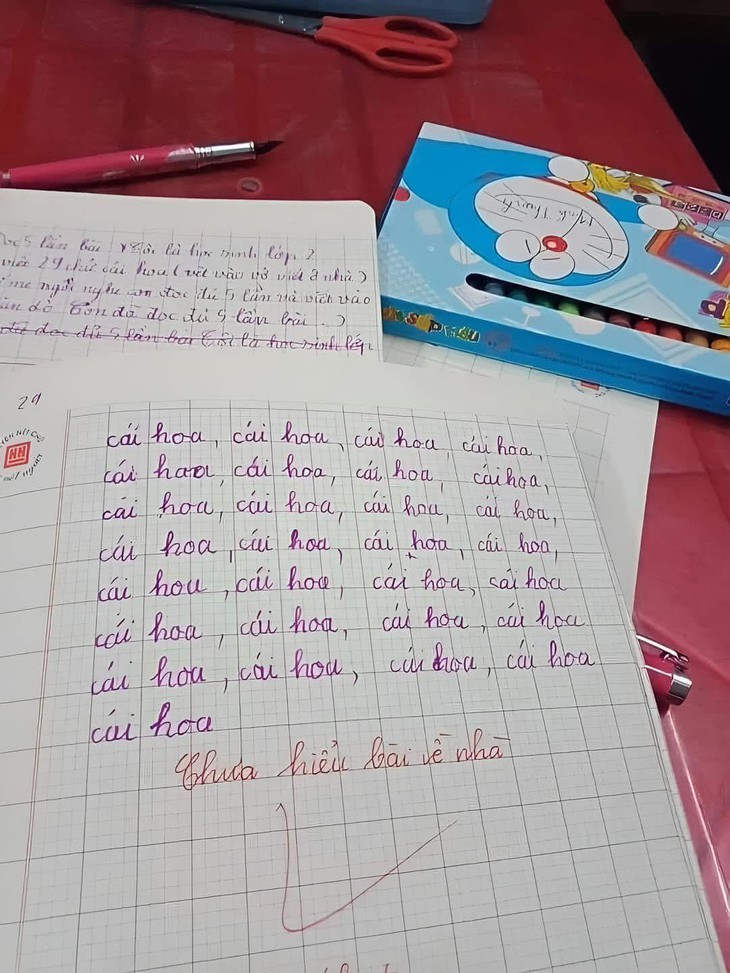 Đọc 5 lần bài Tôi là học sinh lớp 2
viết 29 chữ cái hoa (viết vào vở viết ở nhà)
mẹ ngồi nghe con đọc đủ 5 lần và viết vào
dặn dò Con đã đọc đủ 5 lần bài ..)
đã đọc đủ 5 lần bài Tôi là học sinh lớp
Minh Thư
29
NN
cái hoa, cái hoa, cái hoa, cái hoa,
cái hoa, cái hoa, cái hoa, cái hoa,
cái hoa, cái hoa, cái hoa, cái hoa,
cái hoa, cái hoa, cái hoa, cái hoa,
cái hoa, cái hoa, cái hoa, cái hoa
cái hoa, cái hoa, cái hoa, cái hoa
cái hoa, cái hoa, cái hoa, cái hoa
cái hoa
Chưa hiểu bài về nhà